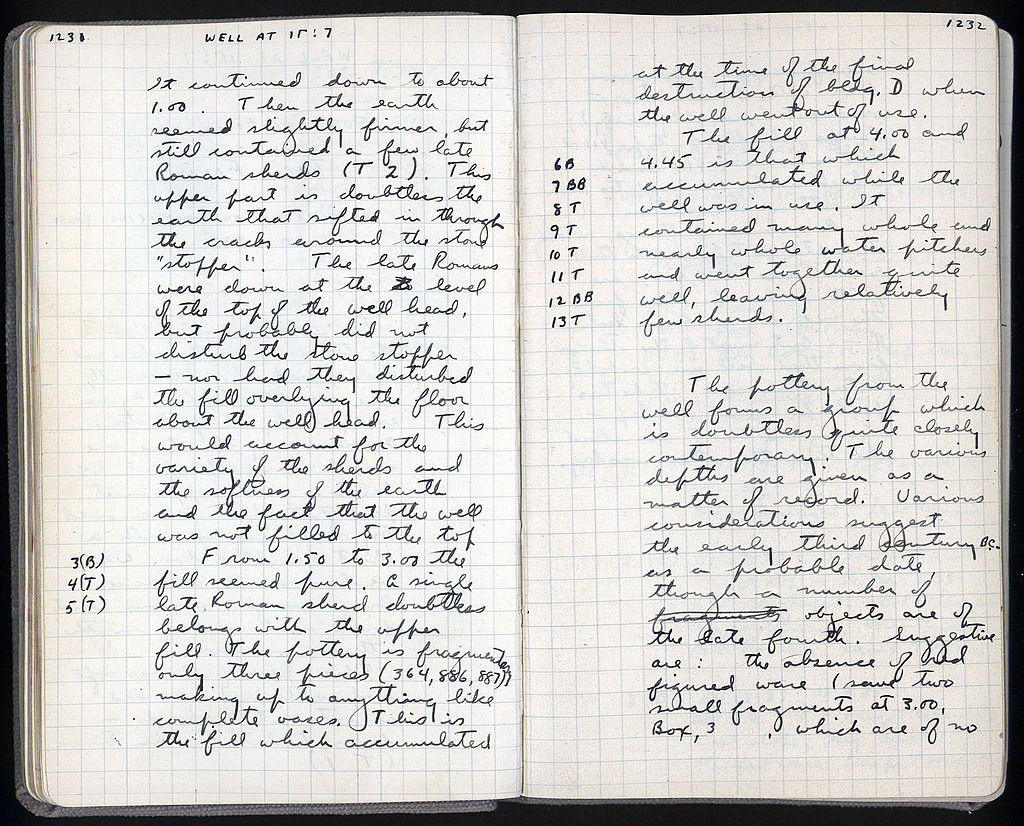 1231
WELL AT ΙΓ:7
It continued down to about
1.00. Then the earth
seemed slightly firmer, but
still contained a few late
Roman sherds (T 2). This
upper part is doubtless the
earth that sifted in through
the cracks around the stone
"stopper". The late Romans
were down at the level
of the top of the well head,
but probably did not
disturb the stone stopper
— nor had they disturbed
the fill overlying the floor
about the well head. This
would account for the
variety of the sherds and
the softness of the earth
and the fact that the well
was not filled to the top
3(B) From 1.50 to 3.00 the
4(T) fill seemed pure. A single
5(T) late Roman sherd doubtless
belongs with the upper
fill. The pottery is fragmentary
only three pieces (364, 886, 887)
making up to anything like
complete vases. This is
the fill which accumulated
1232
at the time of the final
destruction of bldg. D when
the well went out of use.
The fill at 4.00 and
6B 4.45 is that which
7BB accumulated while the
8T well was in use. It
9T contained many whole and
10T nearly whole water pitchers
11T and went together quite
12BB well, leaving relatively
13T few sherds.
The pottery from the
well forms a group which
is doubtless quite closely
contemporary. The various
depths are given as a
matter of record. Various
considerations suggest
the early third century B.C.
as a probable date,
though a number of
fragments objects are of
the late fourth. Suggestive
are: the absence of red
figured ware (save two
small fragments at 3.00,
Box, 3 , which are of no